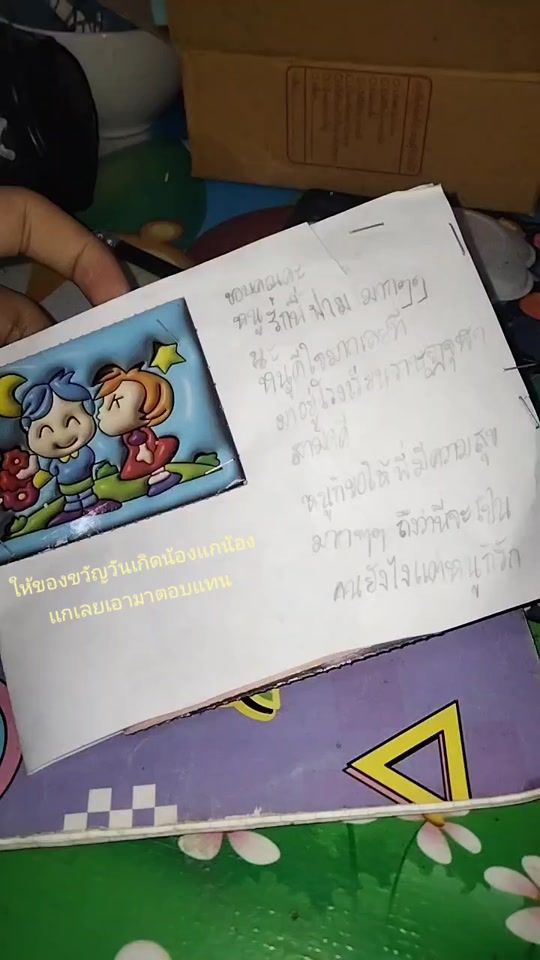 ขอบคุณคะ
หนูรักพี่ฟาม มากๆๆ
นะ
หนูดีใจมากเลยที่
มาอยู่โรงเรียนราษฎร์
สามัคคี
หนูก้ขอให้พี่มีความสุข
มากๆๆ ถึงว่าพี่จะเป็น
คนยังไงแต่หนูก้รัก
ให้ของขวัญวันเกิดน้องแกน้อง
แกเลยเอามาตอบแทน